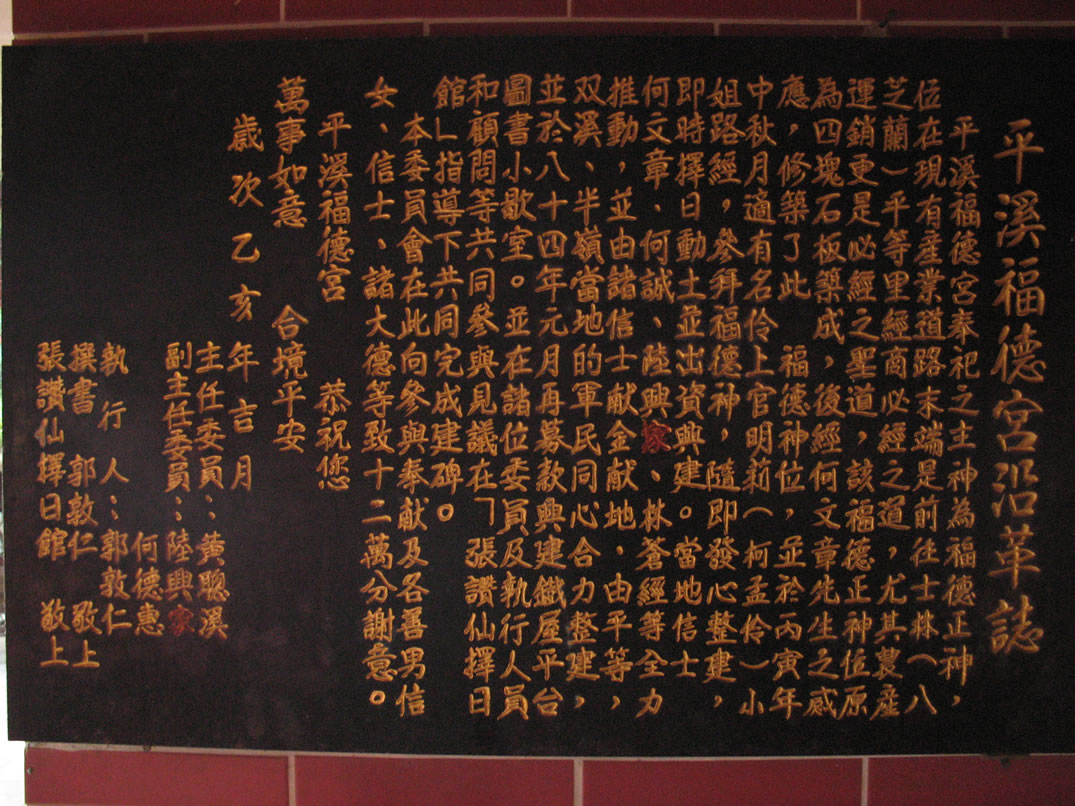 平溪福德宮沿革誌
平溪福德宮奉祀之主神為福德正神，
位在現有產業道路末端是前往士林（八
芝蘭）平等里經商必經之道，尤其農產
運銷更是必經之聖道，該福德正神位原
為四塊石板築成，後經何文章先生之感
應，修築了此　福德神位，並於丙寅年
中秋月適有名伶上官明莉（柯孟伶）小
姐路經，參拜福德神，隨即發心整建，
即時擇日動土並出資興建。當地信士
何文章、何誠、陸興家、林蒼經等全力
推動，並由諸信士献金献地、由平等，
双溪、半嶺當地的軍民同心合力整建，
並於八十四年元月再募款興建鐵屋平台
圖書小歇室。並在諸位委員及執行人員
和顧問等共同參與見議在「張讚仙擇日
館」指導下共同完成建碑。
本委員會在此向參與奉献及各善男信
女、信士、諸大德等致十二萬分謝意。
平溪福德宮　恭祝您
萬事如意　合境平安
歲次乙亥年吉月
主任委員：黃聰溪
副主任委員：陸興家
何德惠
執行人：郭敦仁
撰書　郭敦仁　敬上
張讚仙擇日館　敬上